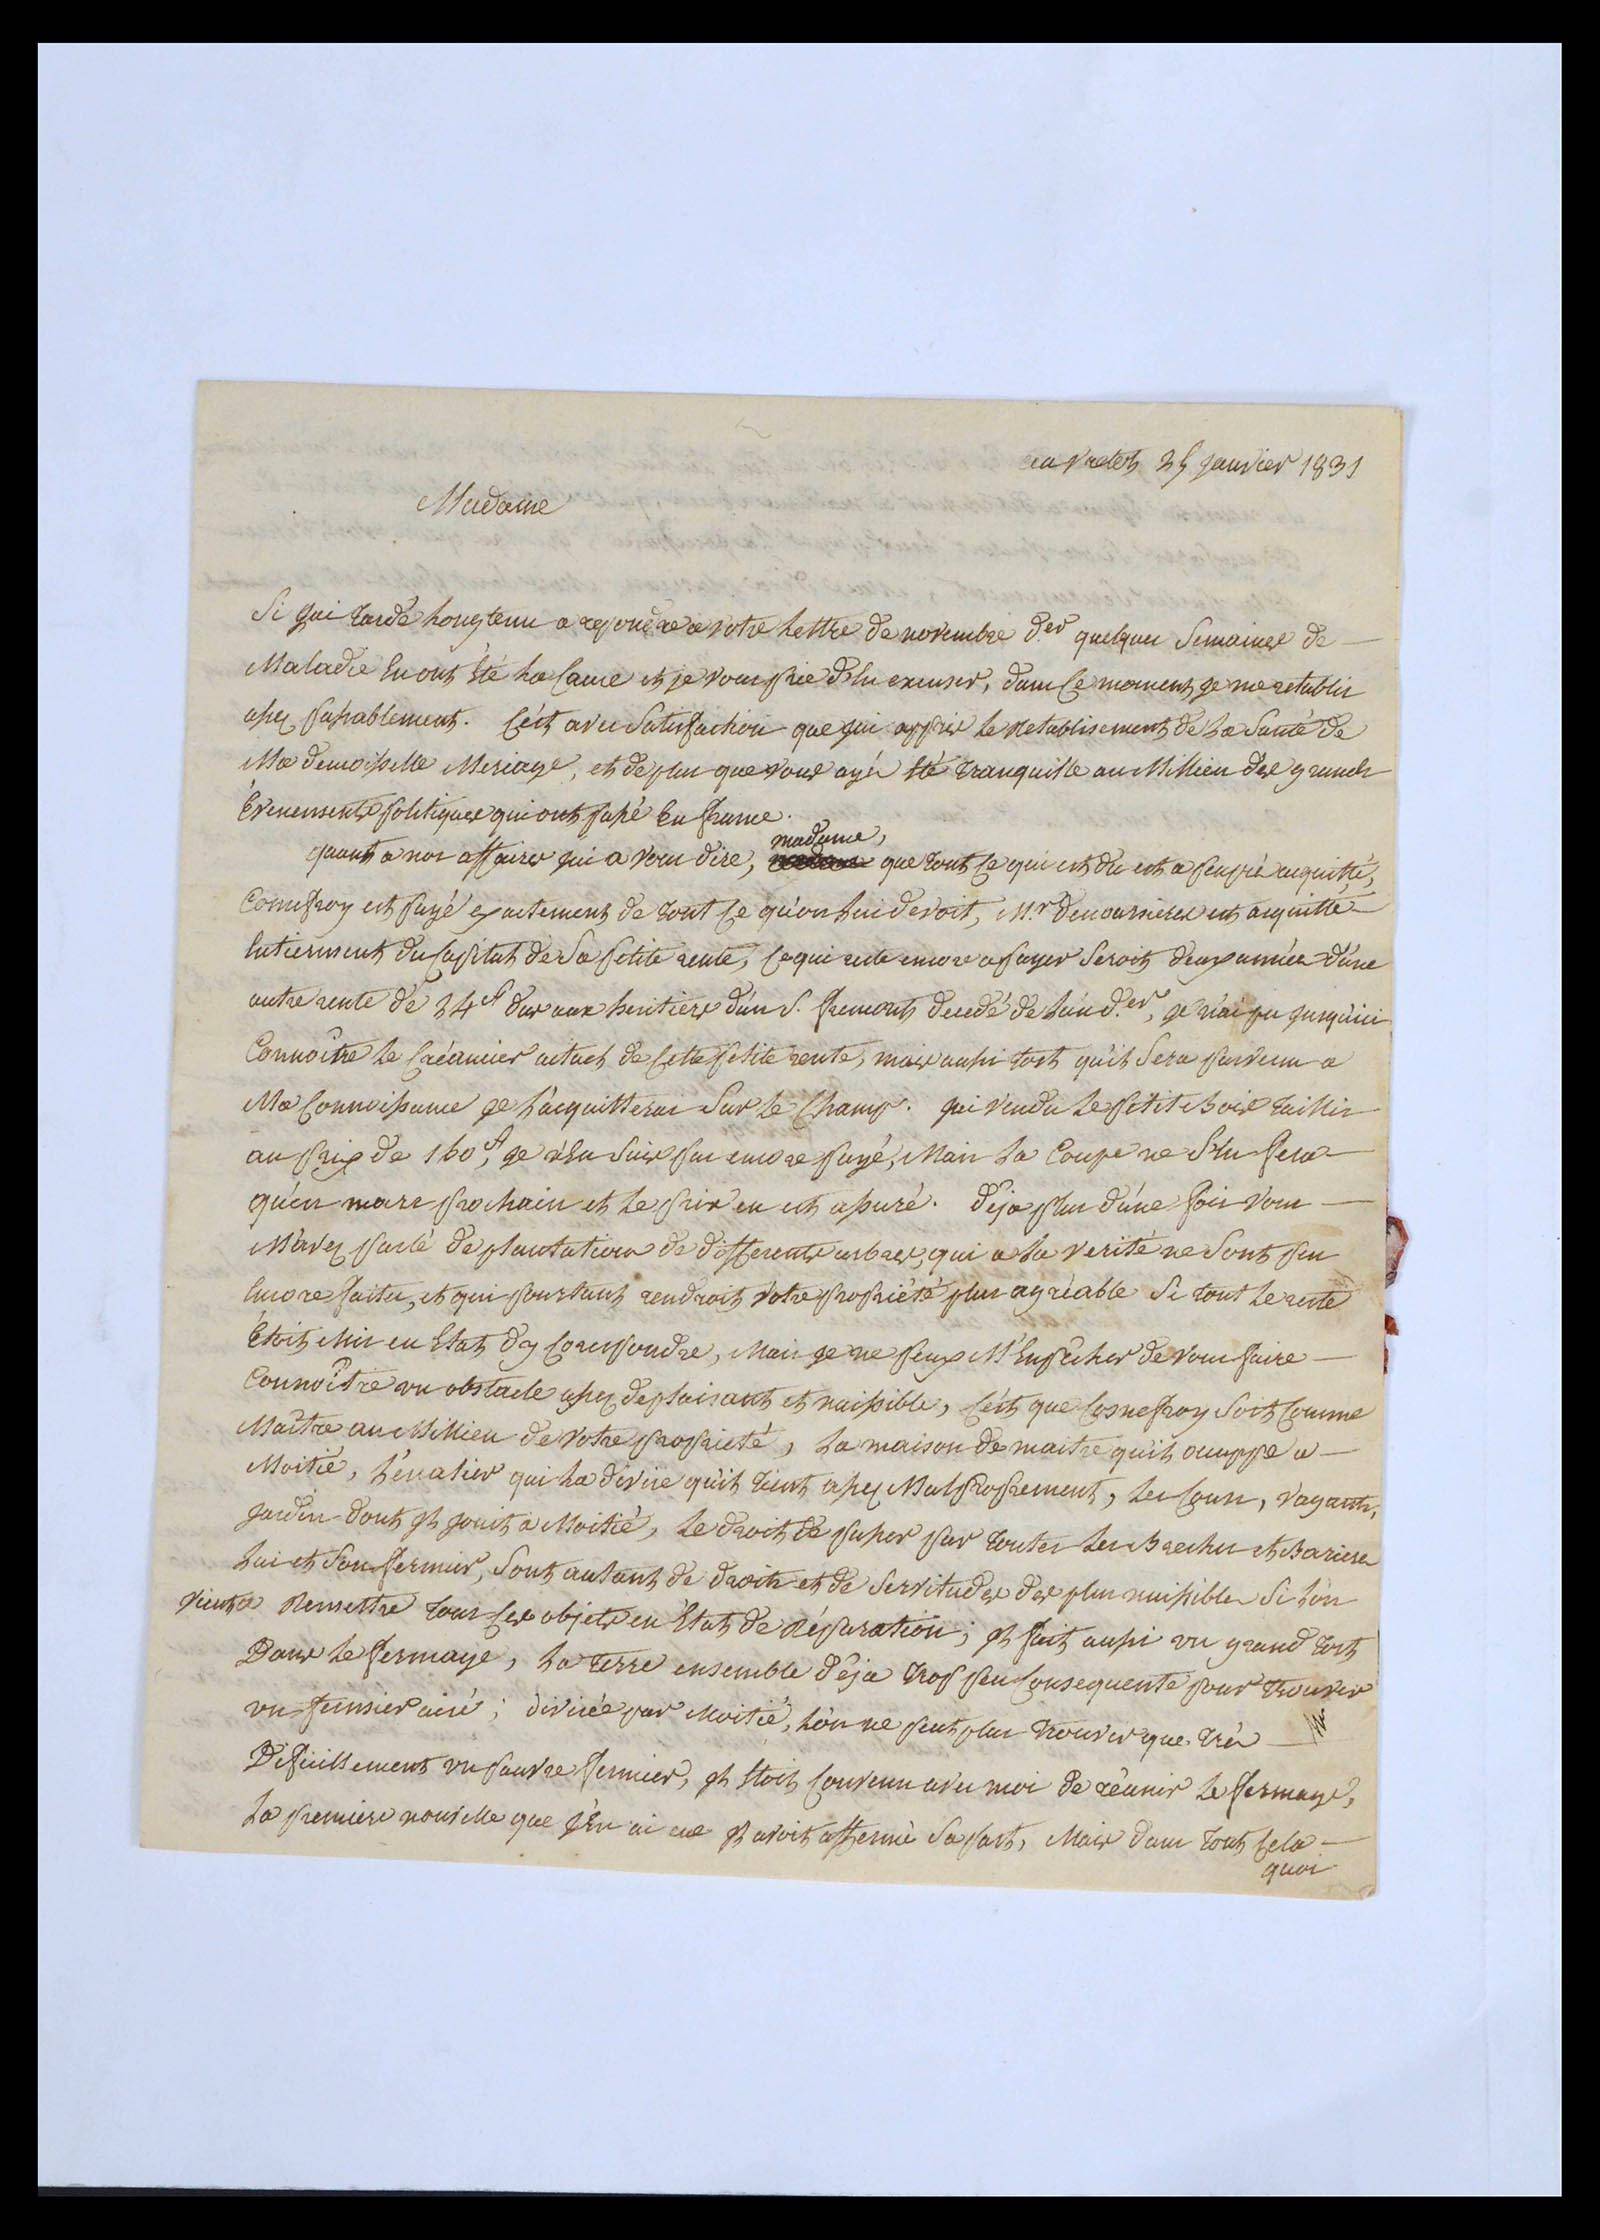 25 janvier 1831
Madame
Si j'ai tardé longtems a repondre a votre Lettre de novembre d.er quelques Semaines de
Maladie En ont Eté La Cause et je vous prie d'En excuser, dans Ce moment je me retablis
assez passablement. C'est avec Satisfaction que j'ai appris Le Retablisement de La Santé de
Mademoiselle Mesiage, et de plus que vous ayés Eté tranquille au Millieu des grands
Evenements politiques qui ont passé En france.
madame,
quant a nos affaires j'ai a vous dire, que tout Ce qui est du est a peuprès acquitté,
Cosnefroy est payé exactement de tout Ce qu'on Lui devoit, M.r est acquitté
Entierement du Capital de Sa petite rente, Ce qui reste encore a payer Seroit deux années d'une
autre rente de 24# due aux heritiers d'un S. fremont decedé de L'an d.er, je n'ai pu jusqu'ici
Connoître Le Créancier actuel de Cette petite rente, mais aussi tost qu'il Sera parvenu a
Ma Connoissance je L'acquitterai Sur Le Champ. j'ai vendu Le petit Bois taillis
au prix de 160#, je n'En Suis pas encore payé, Mais La Coupe ne S'En fera
qu'en mars prochain et Le prix en est assuré. Déja plus d'une fois vous
M'avez parlé de plantations de differents arbres, qui a La verité ne Sont pas
Encore faites, et qui pourtant rendroit votre propriété plus agréable Si tout Le reste
Etoit Mis en Etat d'y Corespondre, Mais je ne peux M'Enpecher de vous faire
Connoître un obstacle assez deplaisant et nuissible, C'est que Cosnefroy Soit Comme
Maître au Millieu de votre propriété, La maison de maitre qu'il ocuppe a
Moitié, L'éscalier qui La divise qu'il tient assez Malproprement, Les Cours,
jardin dont Il jouit a Moitié, Le droit de passer par toutes Les Breches et Barieres
Lui et Son fermier, Sont autant de droits et de Servitudes des plus nuissibles Si L'on
vient a Remettre tous Ces objets en Etat de Réparation; Il fait aussi un grand tort
Dans Le fermage, La terre ensemble déja trop peu Consequente pour trouver
un fermier aisé; divisée par Moitié, L'on ne peut plus trouver que très
Dificillement un pauvre fermier, Il Etoit Convenu avec moi de réunir Le fermage,
La premiere nouvelle que j'En ai eue Il avoit affermé Sa part, Mais dans tout Cela
quoi